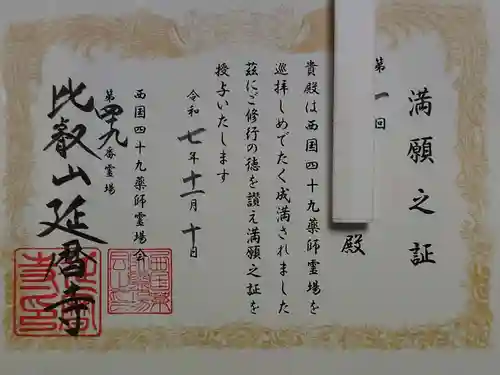 満願之証
第一回
殿
貴殿は西国四十九薬師霊場を
巡拝しめでたく成満されました
茲にご修行の徳を讃え満願之証を
授与いたします
令和七年十一月十日
西国四十九薬師霊場会
第四九番霊場
比叡山延暦寺